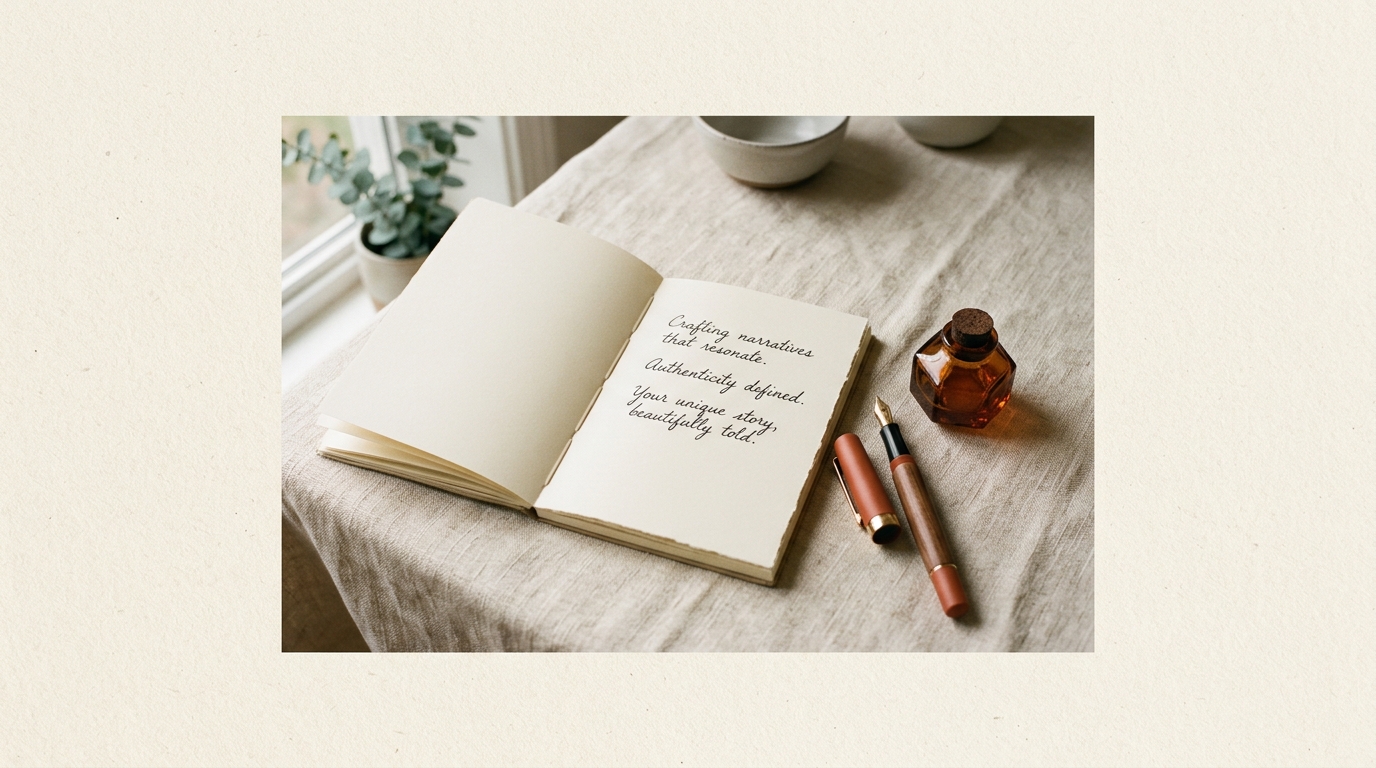 Crafting narratives
that resonate.
Authenticity defined.
Your unique story,
beautifully told.